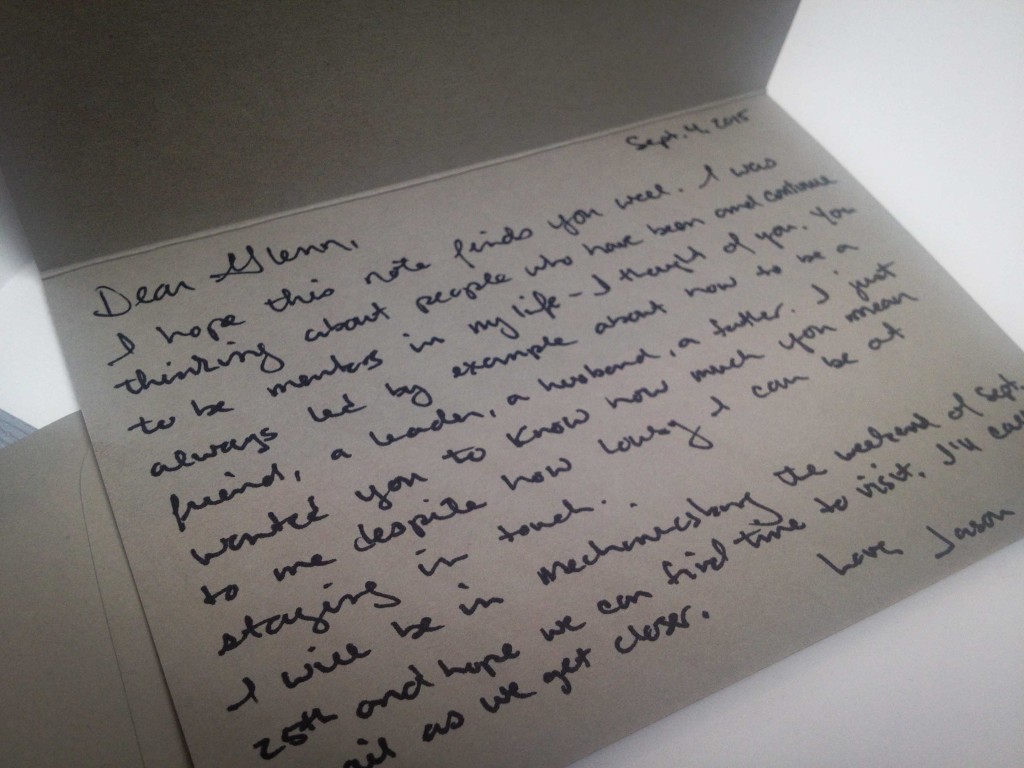 Sept. 4, 2015
Dear Glenn,
I hope this note finds you well. I was
thinking about people who have been and continue
to be mentors in my life - I thought of you. You
always led by example about how to be a
friend, a leader, a husband, a father. I just
wanted you to know how much you mean
to me despite how lousy I can be at
staying in touch.
I will be in Mechanicsburg the weekend of Sept.
25th and hope we can find time to visit. I'll
as we get closer.
Love, Jason